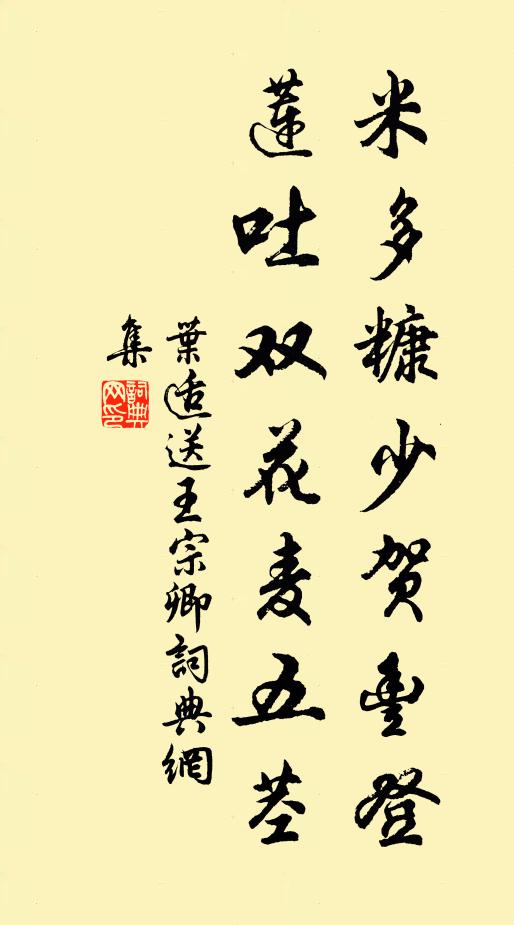 米多糠少贺豊登
蓮吐双花麦五茎
葉适送王宗卿詞典網
集
詞典
网印